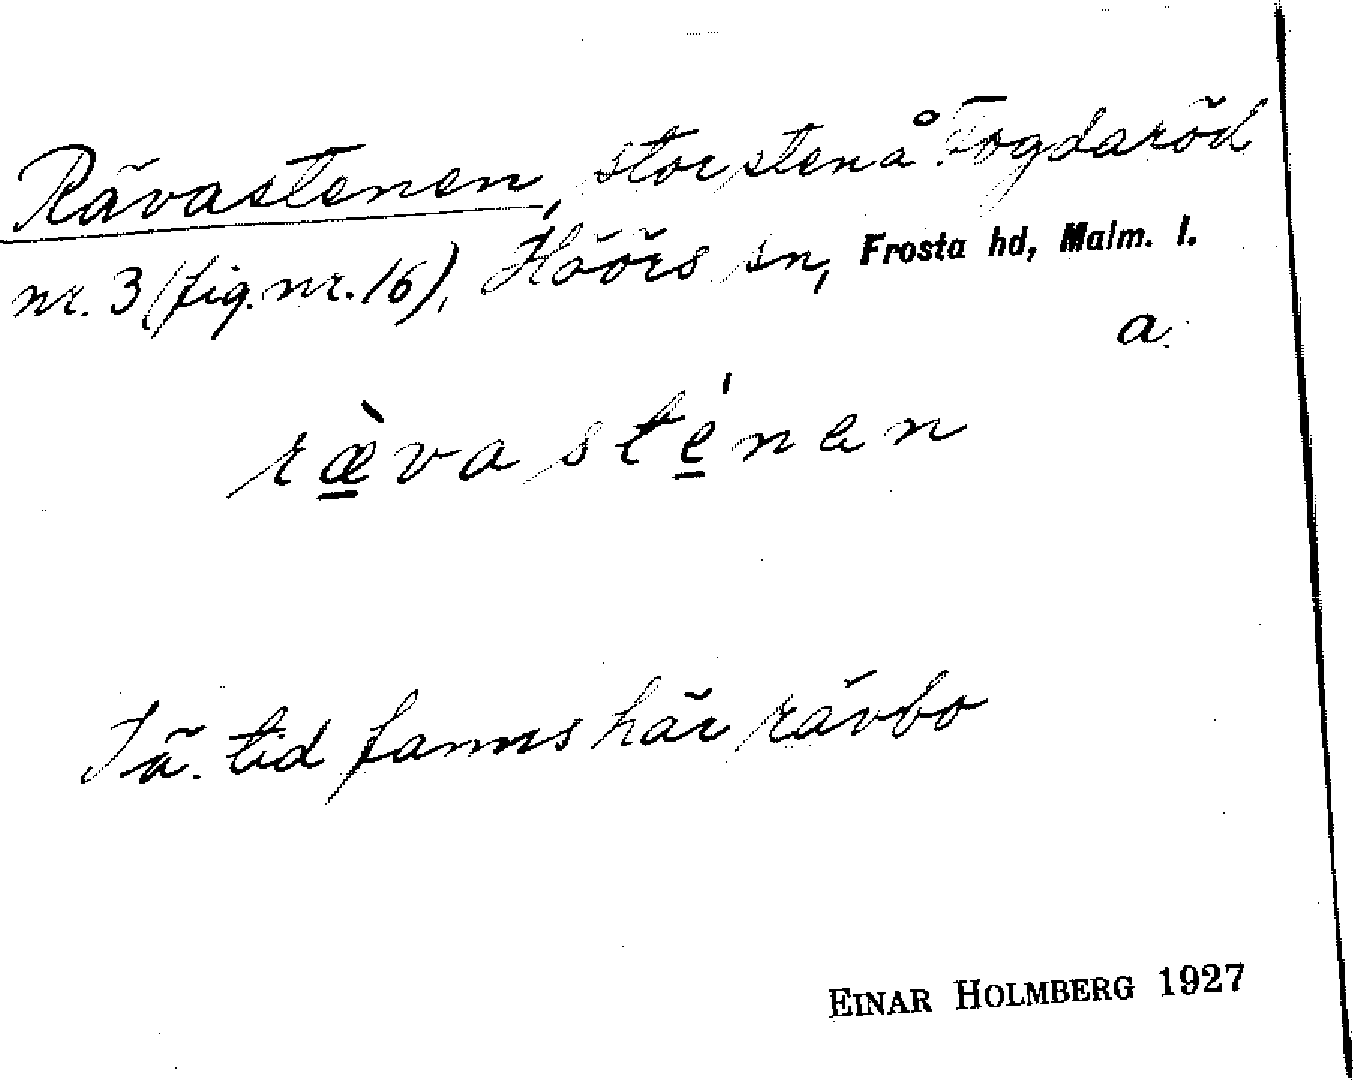 Rävastenen, stor sten å Fogdaröd
nr. 3 (fig. nr. 16), Höörs sn, Frosta hd, Malm. l.
a.
ræ̀vasténen
tid fanns här rävbo
EINAR HOLMBERG 1927